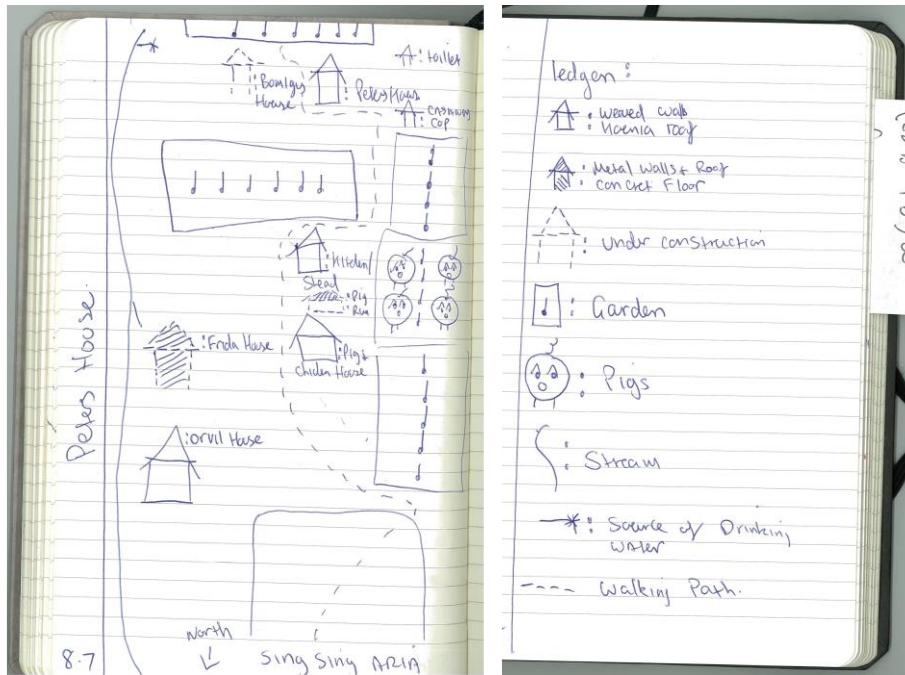 Peters House.
: toilet
: Peters Haus
House
: Cassowary
Cop
: Kitchen/
Stead
: Pig
Run
: Frida Hause
: Pig &
Chicken House
: orvil Hause
North
Sing Sing ARIA
8.7
ledgen :
: weaved walls
: Hoenia roof
: Metal Walls & Roof
: Concret Floor
: Under construction
: Garden
: Pigs
: Stream
: Source of Drinking
Water
Walking Path.